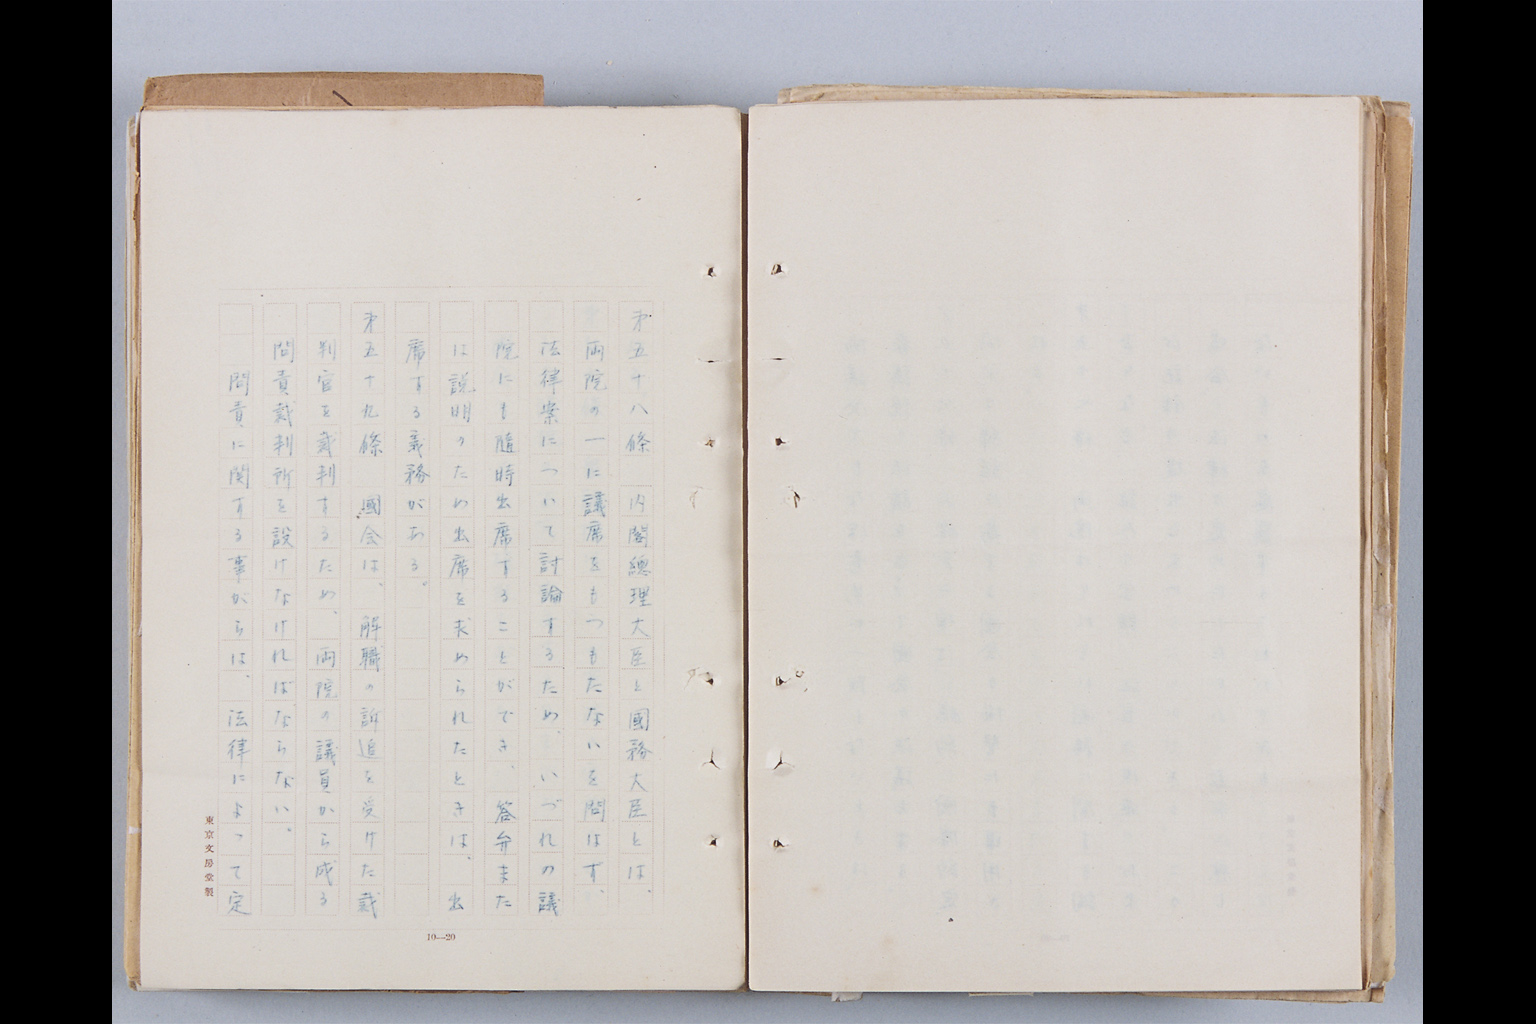 才五十八條　内閣總理大臣と國務大臣とは、
両院の一に議席をもつもたないを問はず、
法律案について討論するため、いづれの議
院にも随時出席することができ、答弁また
は説明のため出席を求められたときは、出
席する義務がある。
才五十九條　國会は、解職の訴追を受けた裁
判官を裁判するため、両院の議員から成る
問責裁判所を設けなければならない。
問責に関する事がらは、法律によって定
東京文房堂製
10—20